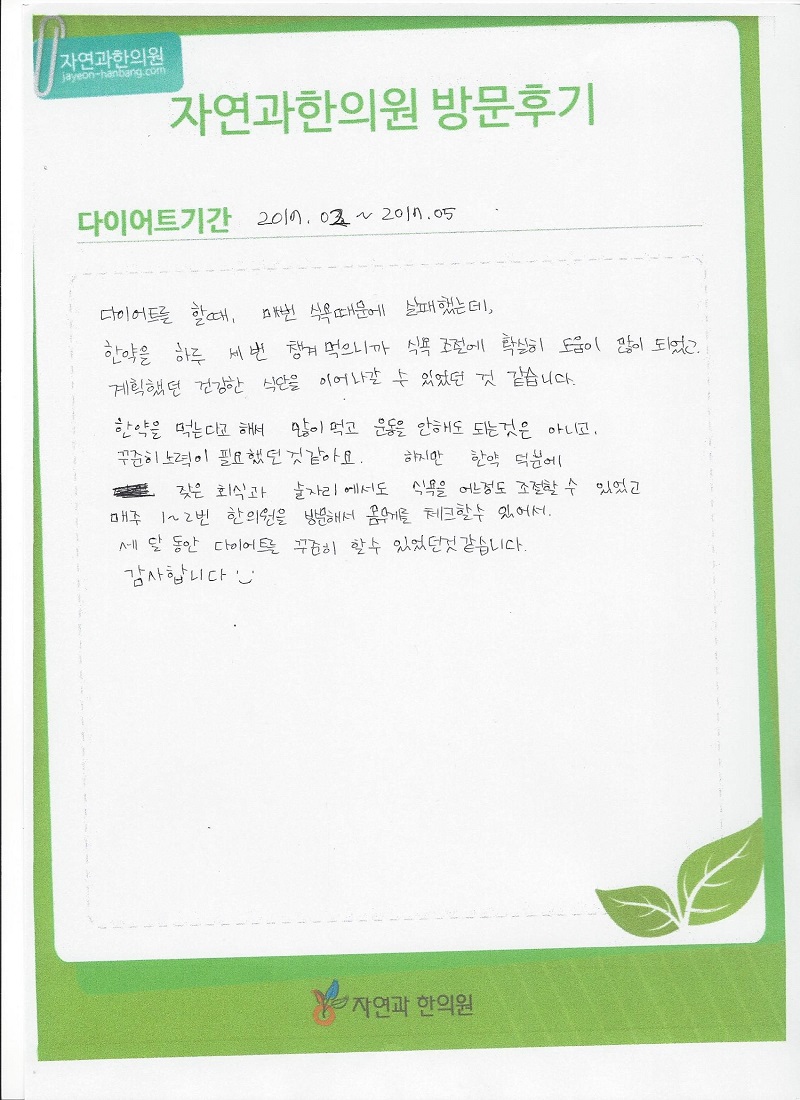 자연과한의원
jayeon-hanbang.com
자연과한의원 방문후기
다이어트기간 2017. 03 ~ 2017. 05
다이어트를 할때, 매번 식욕때문에 실패했는데,
한약을 하루 세번 챙겨 먹으니까 식욕 조절에 확실히 도움이 많이 되었고.
계획했던 건강한 식단을 이어나갈 수 있었던 것 같습니다.
한약을 먹는다고 해서 많이 먹고 운동을 안해도 되는것은 아니고,
꾸준히 노력이 필요했던 것 같아요. 하지만 한약 덕분에
잦은 회식과 술자리에서도 식욕을 어느정도 조절할 수 있었고
매주 1~2번 한의원을 방문해서 몸무게를 체크할수 있어서.
세 달 동안 다이어트를 꾸준히 할수 있었던것 같습니다.
감사합니다
자연과 한의원